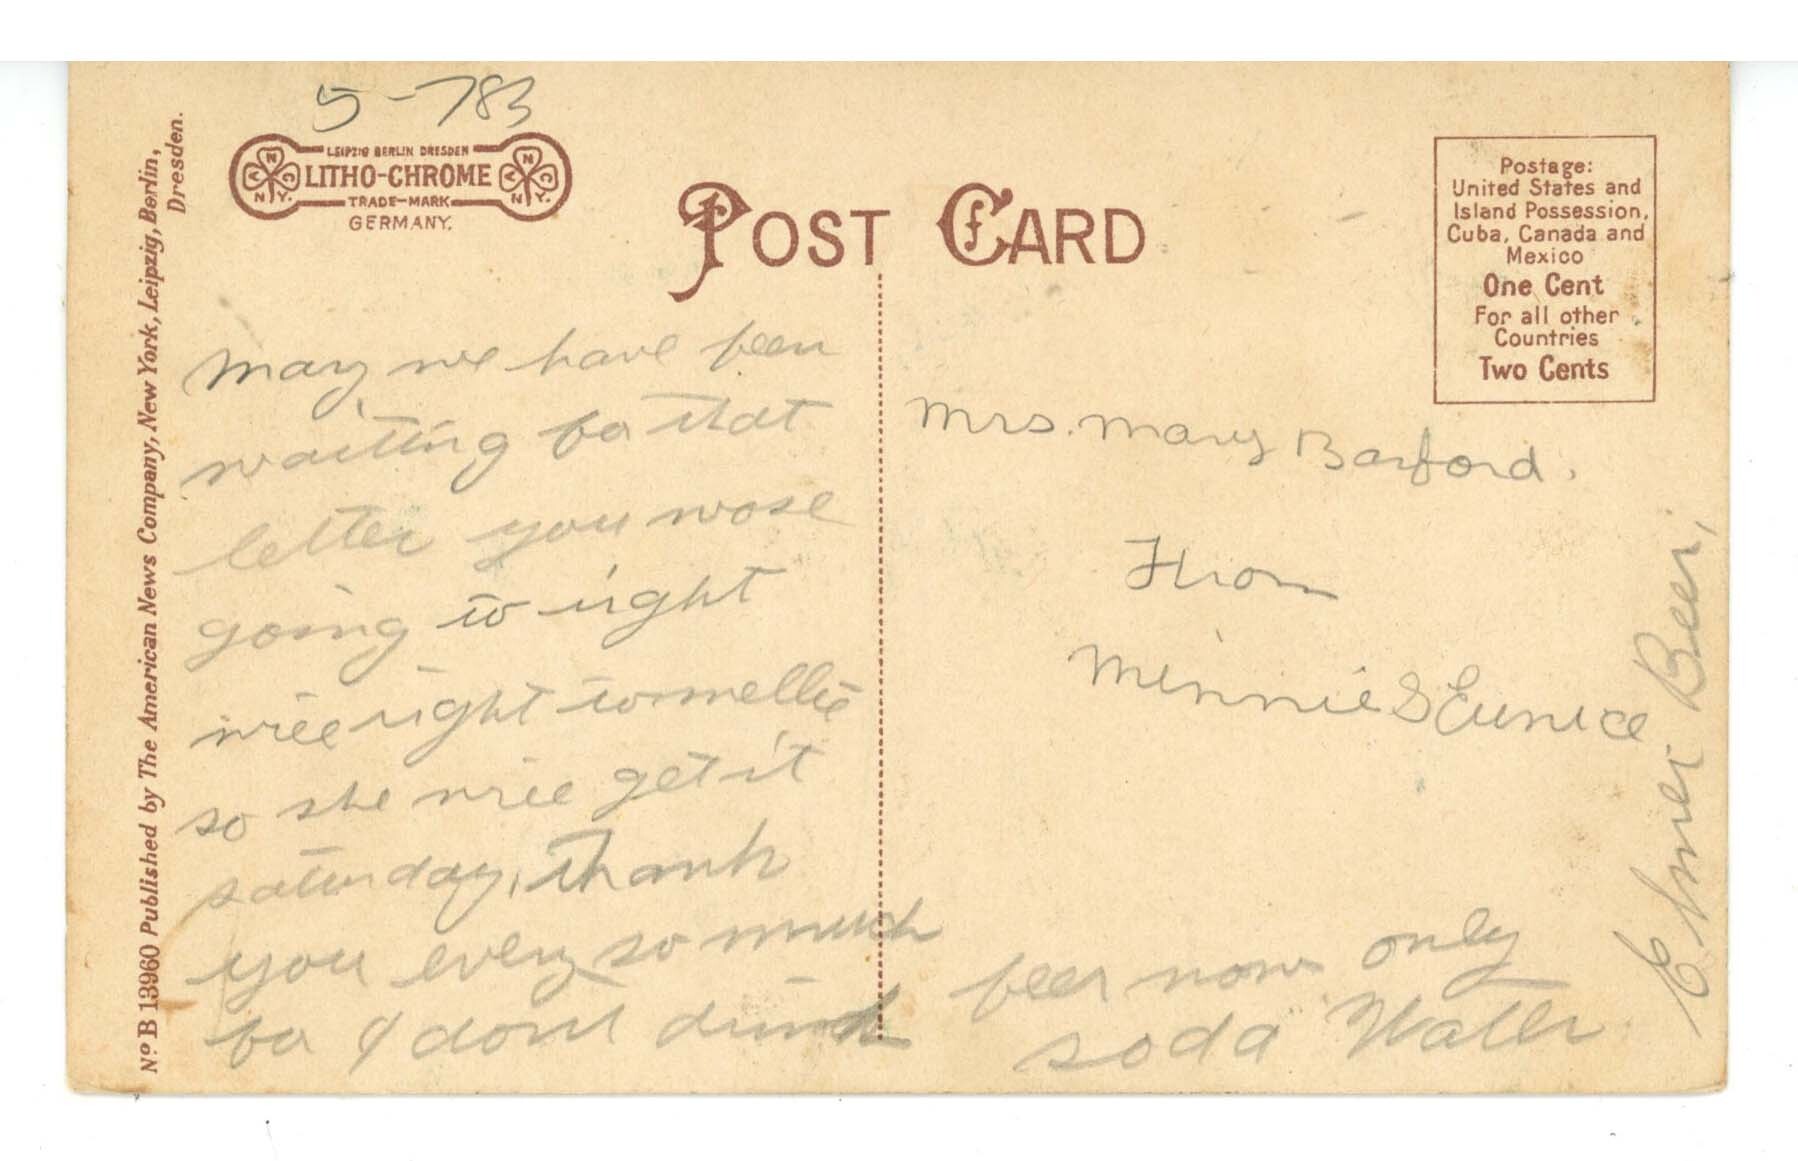 5-783
LEIPZIG BERLIN DRESDEN
LITHO-CHROME
TRADE-MARK
GERMANY.
N A N.Y. C
N A N.Y. C
POST CARD
Postage:
United States and
Island Possession,
Cuba, Canada and
Mexico
One Cent
For all other
Countries
Two Cents
No B 13960 Published by The American News Company, New York, Leipzig, Berlin,
Dresden.
may we have been
waiting for that
letter you wose
going to right
will right to mellie
so she will get it
saturday, thank
you every so much
for I dont drink
beer now only
soda Water
Mrs. Mary Barford.
From
Minnie & Eunice
Elmer Beer,